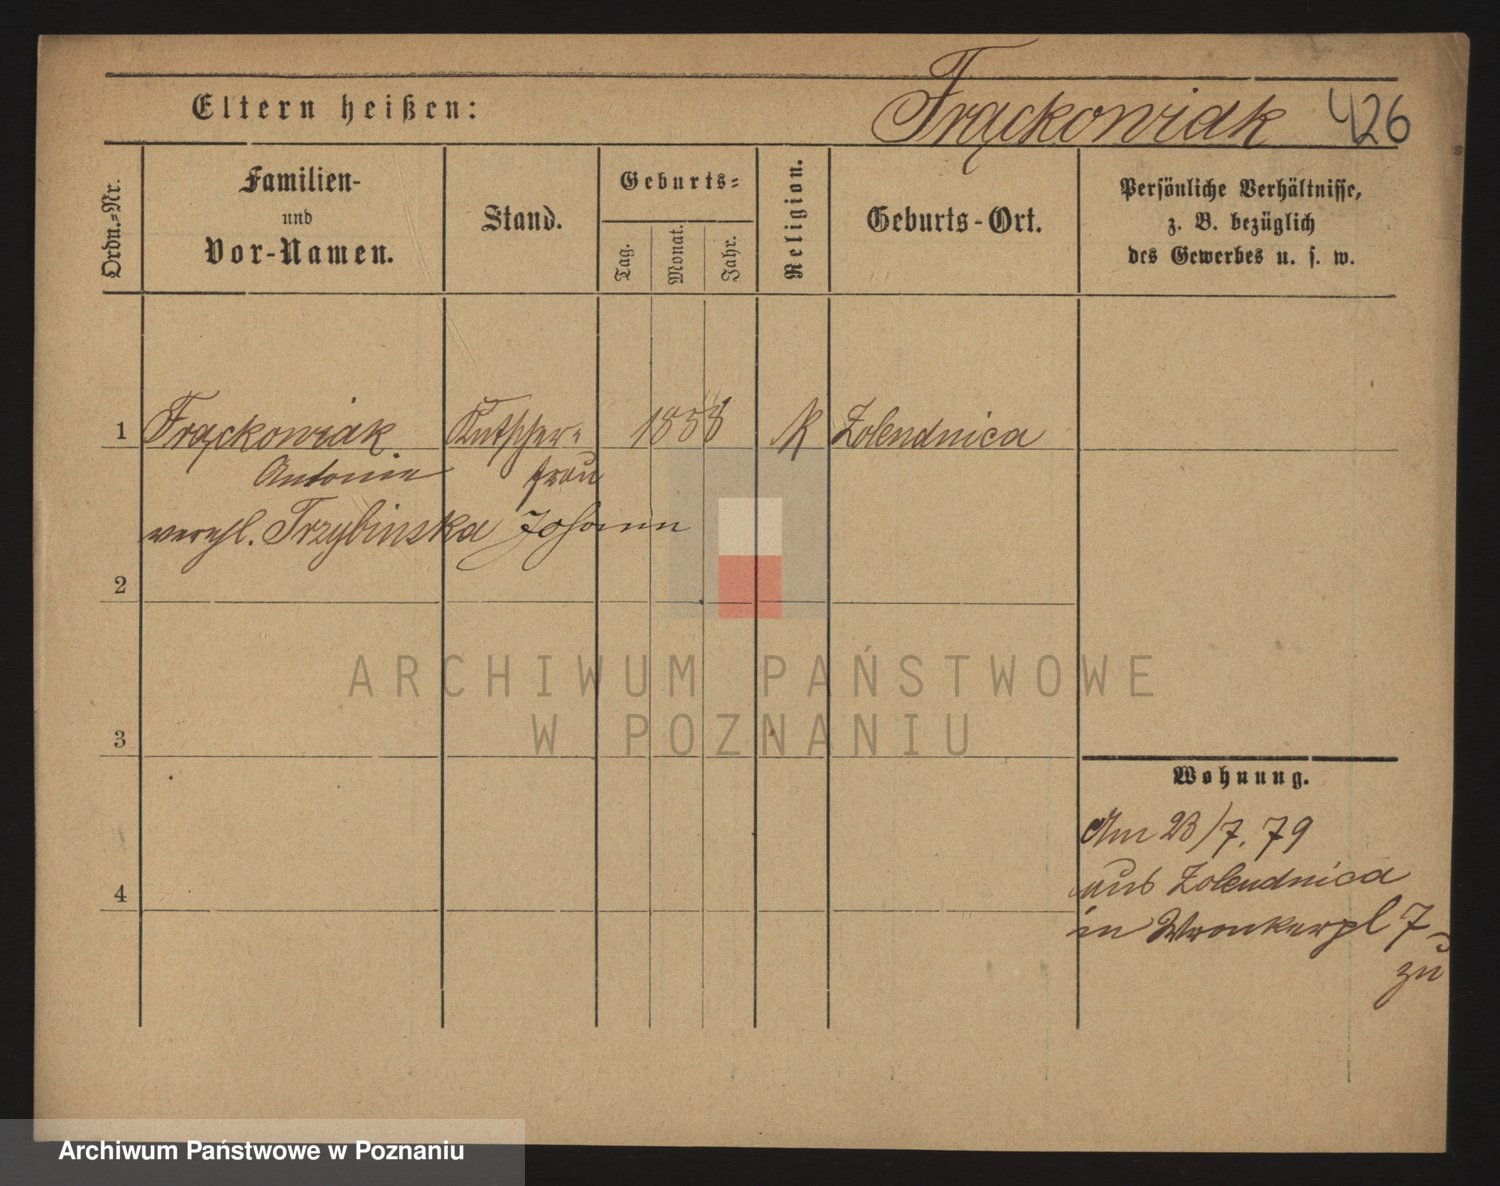 Eltern heißen: Frąckowiak 426
Ordn.=Nr.
Familien-
und
Vor-Namen.
Stand.
Geburts=
Tag.
Monat.
Jahr.
Religion.
Geburts-Ort.
Persönliche Verhältnisse,
z. B. bezüglich
des Gewerbes u. s. w.
1 Frąckowiak Kutscher= 1858 K Zolendnica
Antonie frau
verehl. Trzybinska Johann
2
ARCHIWUM PAŃSTWOWE
W POZNANIU
3
Wohnung.
Am 23/7. 79
aus Zolendnica
4
in Wronkerpl 7
zu
Archiwum Państwowe w Poznaniu